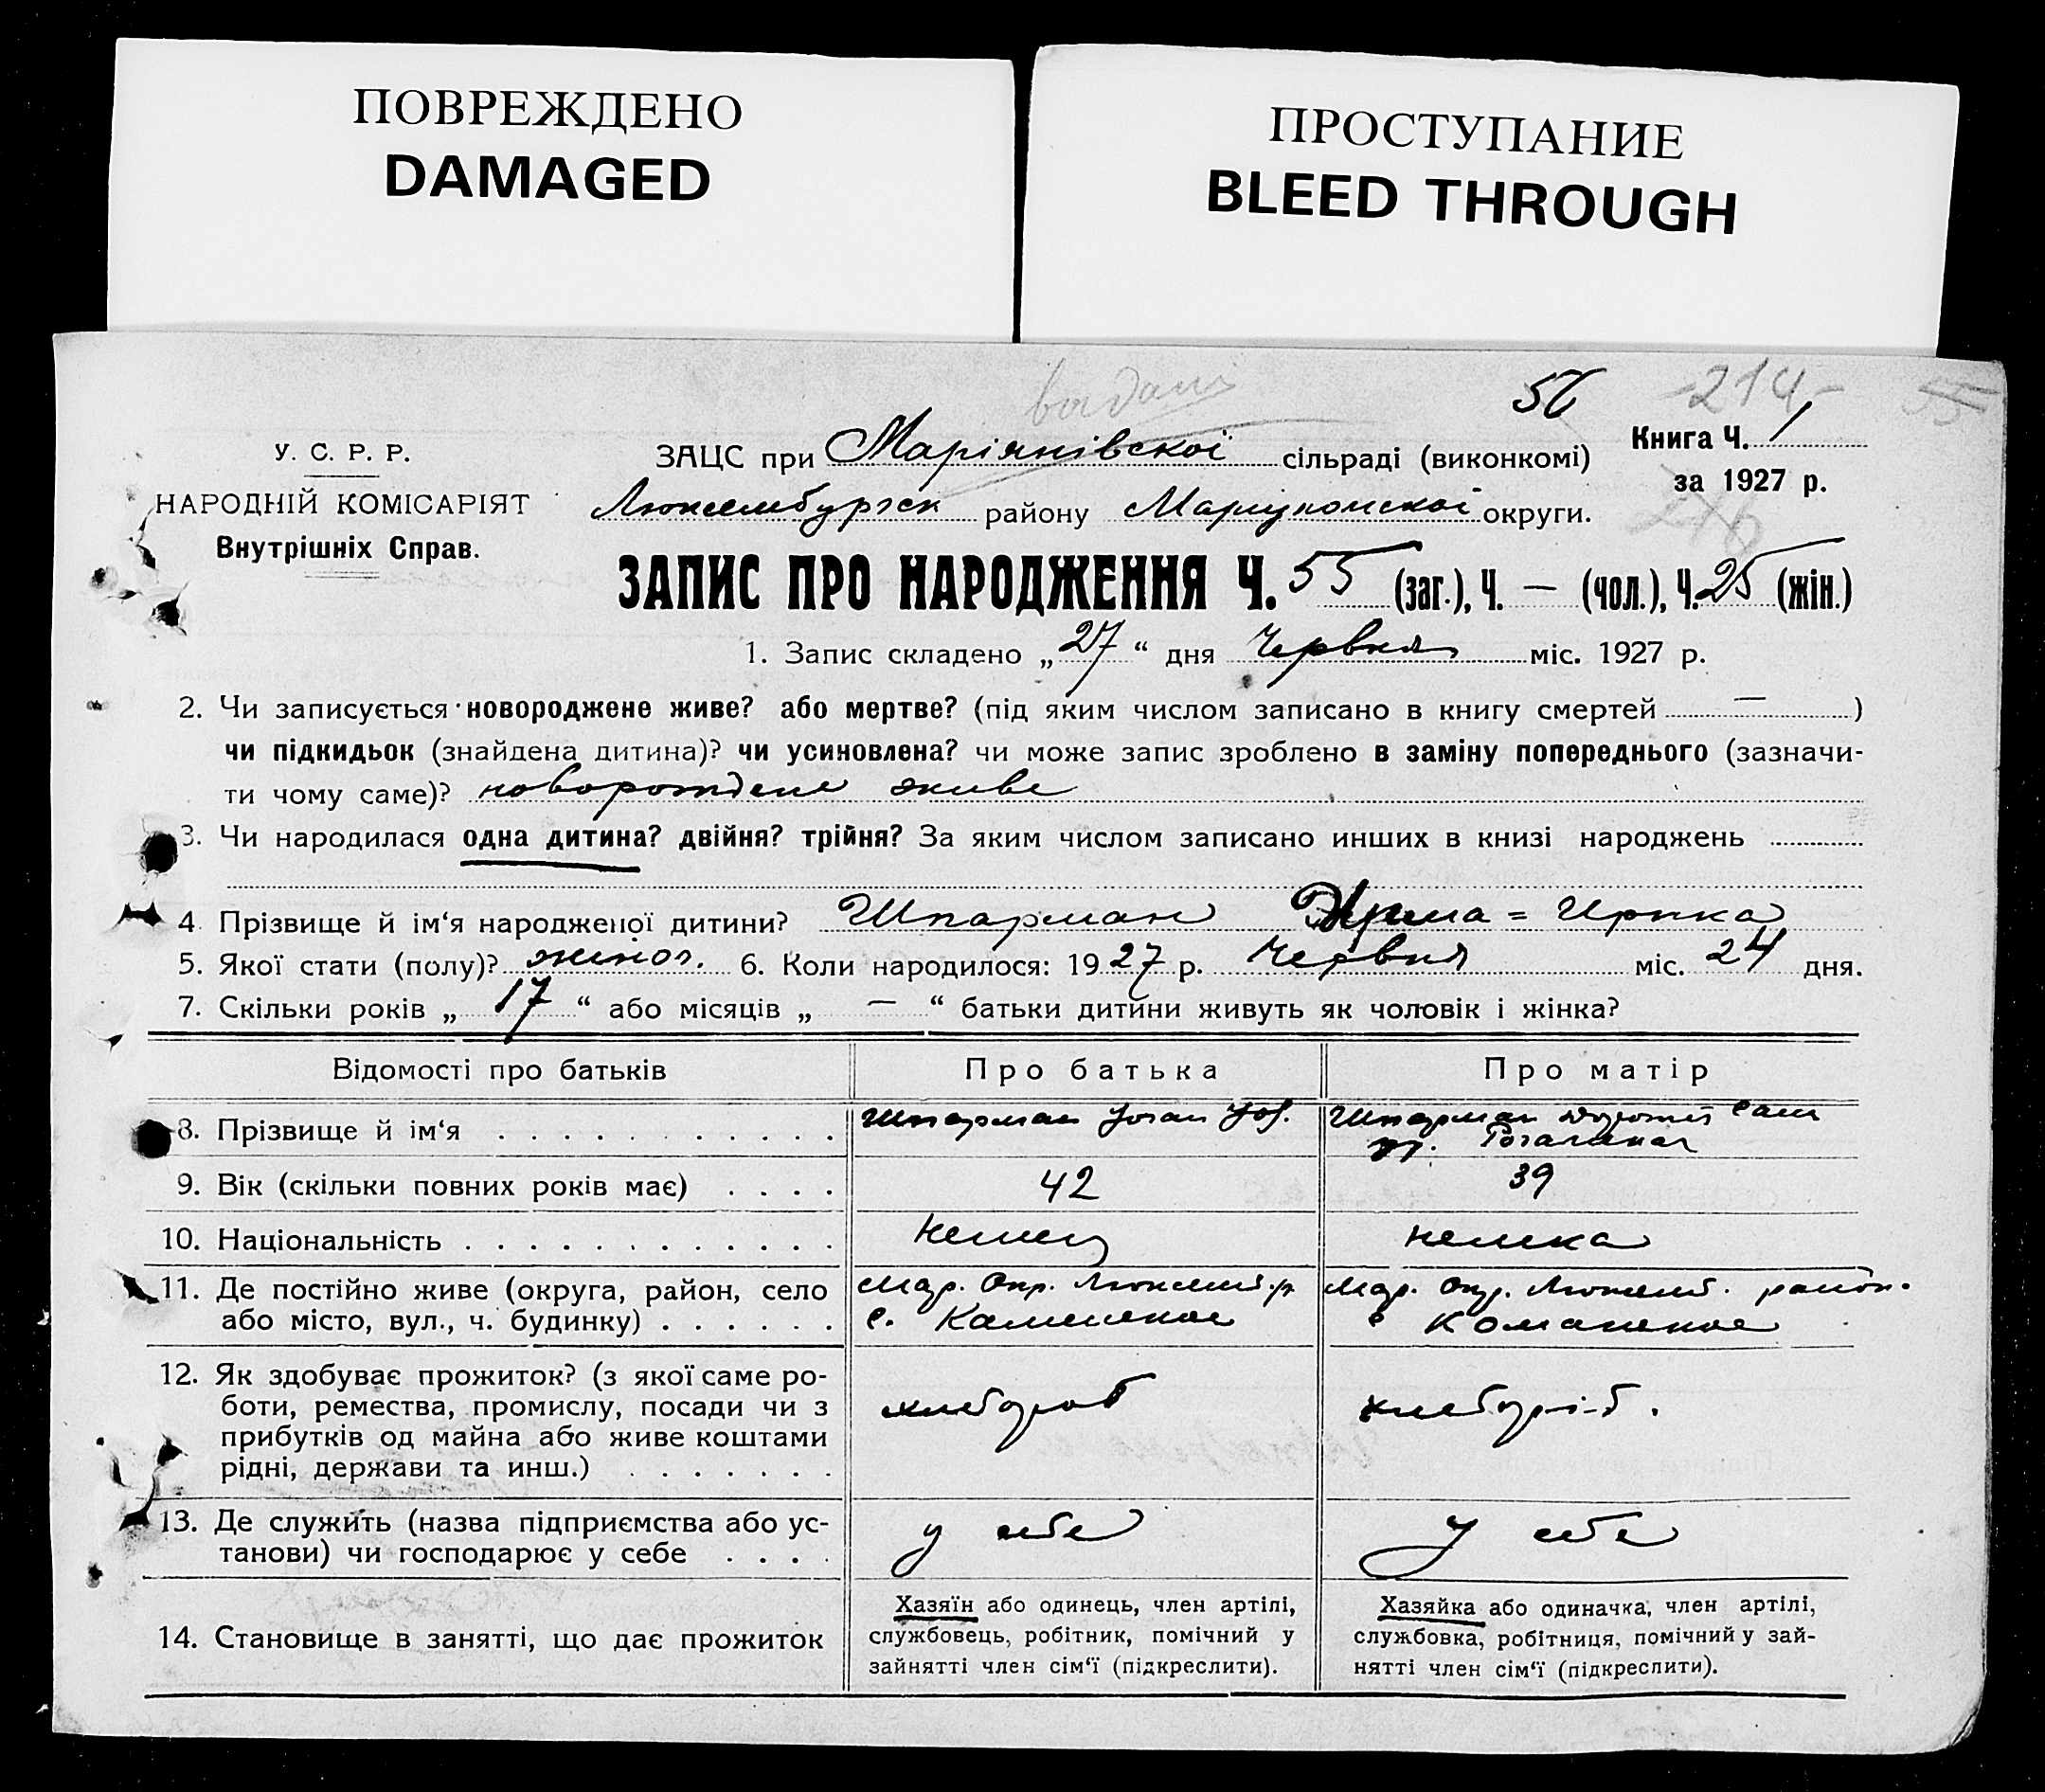 ПОВРЕЖДЕНО
DAMAGED
ПРОСТУПАНИЕ
BLEED THROUGH
56 -214- 55
У. С. Р. Р.
НАРОДНІЙ КОМІСАРІЯТ
Внутрішніх Справ.
ЗАЦС при Маріянівскої сільраді (виконкомі)
Книга Ч. 1
за 1927 р.
Люксембургск району Маріупомскої округи.
ЗАПИС ПРО НАРОДЖЕННЯ Ч. 55 (заг.), Ч. — (чол.), Ч. 25 (жін.)
1. Запис складено „ 27 “ дня Червня міс. 1927 р.
2. Чи записується новороджене живе? або мертве? (під яким числом записано в книгу смертей — )
чи підкидьок (знайдена дитина)? чи усиновлена? чи може запис зроблено в заміну попереднього (зазначи-
ти чому саме)? новорождене живе
3. Чи народилася одна дитина? двійня? трійня? За яким числом записано инших в книзі народжень
4. Прізвище й ім‘я народженої дитини? Шпарман Ирма = Ирпка
5. Якої стати (полу)? жіноч. 6. Коли народилося: 1927 р. Червня міс. 24 дня.
7. Скільки років „ 17 “ або місяців „ — “ батьки дитини живуть як чоловік і жінка?
Відомості про батьків Про батька Про матір
8. Прізвище й ім‘я Шпарман Йоган Йос. Шпарман
9. Вік (скільки повних років має) 42 39
10. Національність Немец немка
11. Де постійно живе (округа, район, село Мар. Окр. Люксемб. р. Мар. Окр. Люксемб. район.
або місто, вул., ч. будинку) с. Каменское с Команское
12. Як здобуває прожиток? (з якої саме ро-
боти, ремества, промислу, посади чи з хлебороб хлебор-і-б.
прибутків од майна або живе коштами
рідні, держави та инш.)
13. Де служить (назва підприємства або ус- у себе У себе
танови) чи господарює у себе
Хазяїн або одинець, член артілі, Хазяйка або одиначка, член артілі,
14. Становище в занятті, що дає прожиток службовець, робітник, помічний у службовка, робітниця, помічний у зай-
зайнятті член сім‘ї (підкреслити). нятті член сім‘ї (підкреслити).